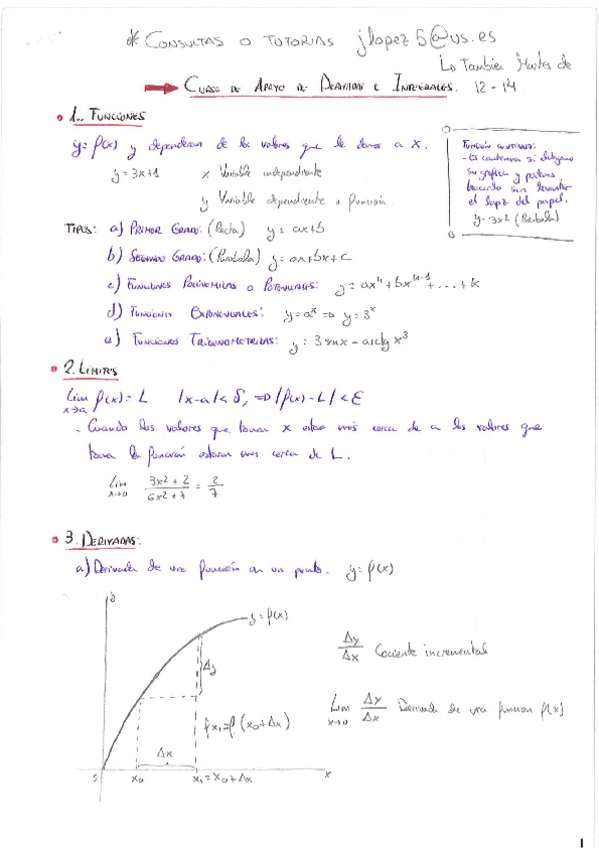 * CONSULTAS O TUTORIAS jlopez5@us.es
Lo Tambien Martes de
12 - 14
CURSO DE APOYO DE DERIVADAS E INTEGRALES.
1.. FUNCIONES
y = f(x) y dependeran de los valores que le demos a x.
y = 3x+1 x Variable independiente
y Variable dependiente o función.
FUNCIÓN CONTINUA:
- Es continua si dibujamos
su gráfica y podemos
hacerlo sin levantar
el lapiz del papel.
y = 3x² (Parabola)
TIPOS: a) PRIMER GRADO: (Recta) y = ax+b
b) SEGUNDO GRADO: (Parabola) y = ax+bx+c
c) FUNCIONES POLINOMICAS O POTENCIALES: y = axⁿ + bxⁿ⁻¹ + ... + k
d) FUNCIONES EXPONENCIALES: y = aˣ => y = 3ˣ
e) FUNCIONES TRIGONOMETRICAS: y = 3 senx - arctg x³
2. LIMITES
Lim f(x) = L |x-a| < δ, => |f(x) - L| < ε
x→a
- Cuando los valores que toman x estan mas cerca de a los valores que
toma la función estaran mas cerca de L.
Lim 3x² + 2 / 6x² + 7 = 2/7
x→0
3. DERIVADAS:
a) Derivada de una función en un punto. y = f(x)
y = f(x)
Δy
Δy/Δx Cociente incremental
fx₁ = f(x₀+Δx)
Lim Δy/Δx Derivada de una funcion f(x)
x→0
Δx
x₀ x₁ = x₀ + Δx x
1